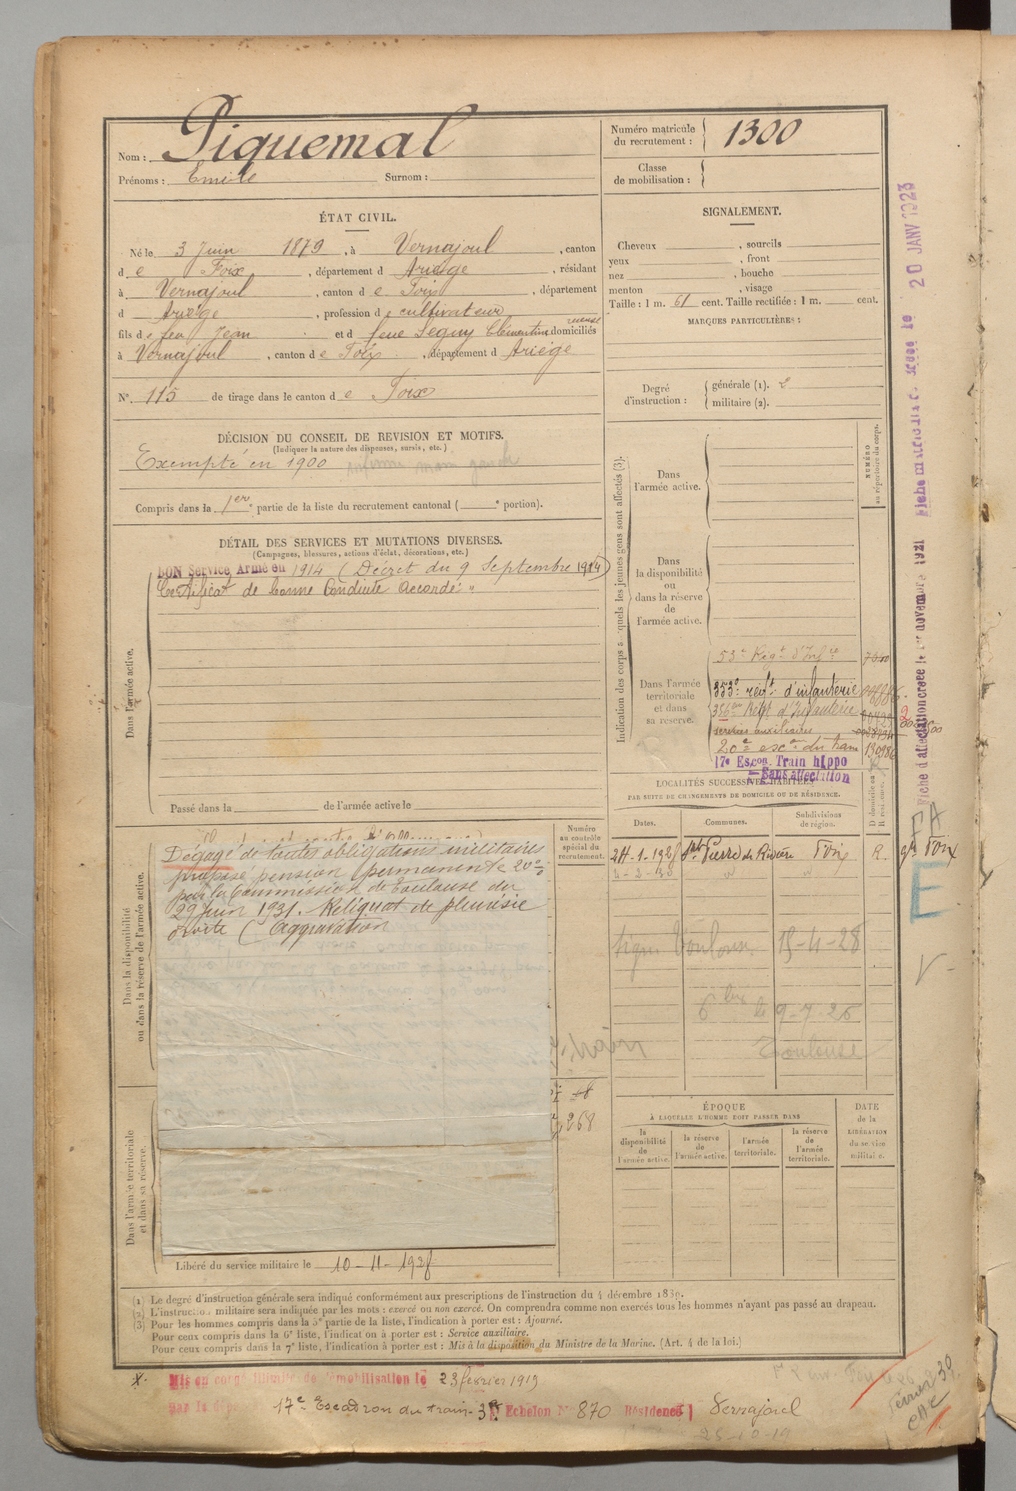 Nom : Piquemal
Prénoms : Emile Surnom :
Numéro matricule du recrutement : 1300
Classe de mobilisation :
ÉTAT CIVIL.
Né le 3 Juin 1879, à Vernajoul, canton
d e Foix, département d Ariège, résidant
à Vernajoul, canton d e Foix, département
d Ariège, profession de cultivateur
fils de feu Jean et d feue Seguy Clémentine domiciliés
à Vernajoul, canton de Foix, département d Ariège
N° 115 de tirage dans le canton d e Foix
DÉCISION DU CONSEIL DE REVISION ET MOTIFS.
(Indiquer la nature des dispenses, sursis, etc.)
Exempté en 1900 main gauche
Compris dans la 1er partie de la liste du recrutement cantonal ( portion).
DÉTAIL DES SERVICES ET MUTATIONS DIVERSES.
(Campagnes, blessures, actions d'éclat, décorations, etc.)
BON Service Armé en 1914 (Décret du 9 Septembre 1914)
Certificat de bonne Conduite Accordé "
Dans l'armée active.
Passé dans la de l'armée active le
Numéro au contrôle spécial du recrutement.
Dégagé de toutes obligations militaires
propose pension permanente 20%
par la Commission de Toulouse du
29 Juin 1931. Reliquat de pleurésie
droite (aggravation
Dans la disponibilité ou dans la réserve de l'armée active.
268
Dans l'armée territoriale et dans sa réserve.
Libéré du service militaire le 10-11-1928
SIGNALEMENT.
Cheveux , sourcils
yeux , front
nez , bouche
menton , visage
Taille : 1 m. 61 cent. Taille rectifiée : 1 m. cent.
MARQUES PARTICULIÈRES :
Degré d'instruction : générale (1). 2
militaire (2).
Indication des corps auxquels les jeunes gens sont affectés (3).
NUMÉRO au répertoire du corps.
Dans l'armée active.
Dans la disponibilité ou dans la réserve de l'armée active.
Dans l'armée territoriale et dans sa réserve.
53e Régt d'Infie
353e regt d'infanterie
356eme Régt d'Infanterie
services auxiliaires
20e escon du train 130986
17e Escon Train hippo
Sans affectation
LOCALITÉS SUCCESSIVES HABITÉES
PAR SUITE DE CHANGEMENTS DE DOMICILE OU DE RÉSIDENCE.
Dates. Communes. Subdivisions de région. D domicile ou R résidence.
24-1-1928 St Pierre de Rivière Foix R.
Foix
15-4-28
6 bis le 9-7-26
Toulouse
ÉPOQUE
À LAQUELLE L'HOMME DOIT PASSER DANS
la disponibilité de l'armée active. la réserve de l'armée active. l'armée territoriale. la réserve de l'armée territoriale.
DATE de la LIBÉRATION du service militaire.
(1) Le degré d'instruction générale sera indiqué conformément aux prescriptions de l'instruction du 4 décembre 1889.
(2) L'instruction militaire sera indiquée par les mots : exercé ou non exercé. On comprendra comme non exercés tous les hommes n'ayant pas passé au drapeau.
(3) Pour les hommes compris dans la 5e partie de la liste, l'indication à porter est : Ajourné.
Pour ceux compris dans la 6e liste, l'indication à porter est : Service auxiliaire.
Pour ceux compris dans la 7e liste, l'indication à porter est : Mis à la disposition du Ministre de la Marine. (Art. 4 de la loi.)
Mis en congé illimité de démobilisation le 23 février 1919
par le dépôt 17e Escadron du train 3e Echelon N° 870 Résidence Vernajoul
25-10-19
Février 30
Fiche d'affectation créée le 1er novembre 1921 Fiche matricule créée le 20 JANV 1923